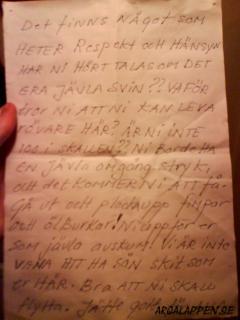 Det finns något som
HETER Respekt och HÄNSYN
HAR NI HÖRT TALAS OM DET
ERA JÄVLA SVIN?? VAFÖR
tror NI ATT NI KAN LEVA
RÖVARE HÄR? ÄR NI INTE
100 i SKALLEN?? NI Borde HA
EN JÄVLA omgång STRYK,
och det KOMMER NI ATT få.
GÅ ut och plocka upp fimpar
och ölBurkar! Ni uppför er
som jävla avskum! Vi ÄR inte
VANA ATT HA SÅN skit som
er HÄR. Bra ATT NI SKALL
flytta. Jätte gott
ARGALAPPEN.SE